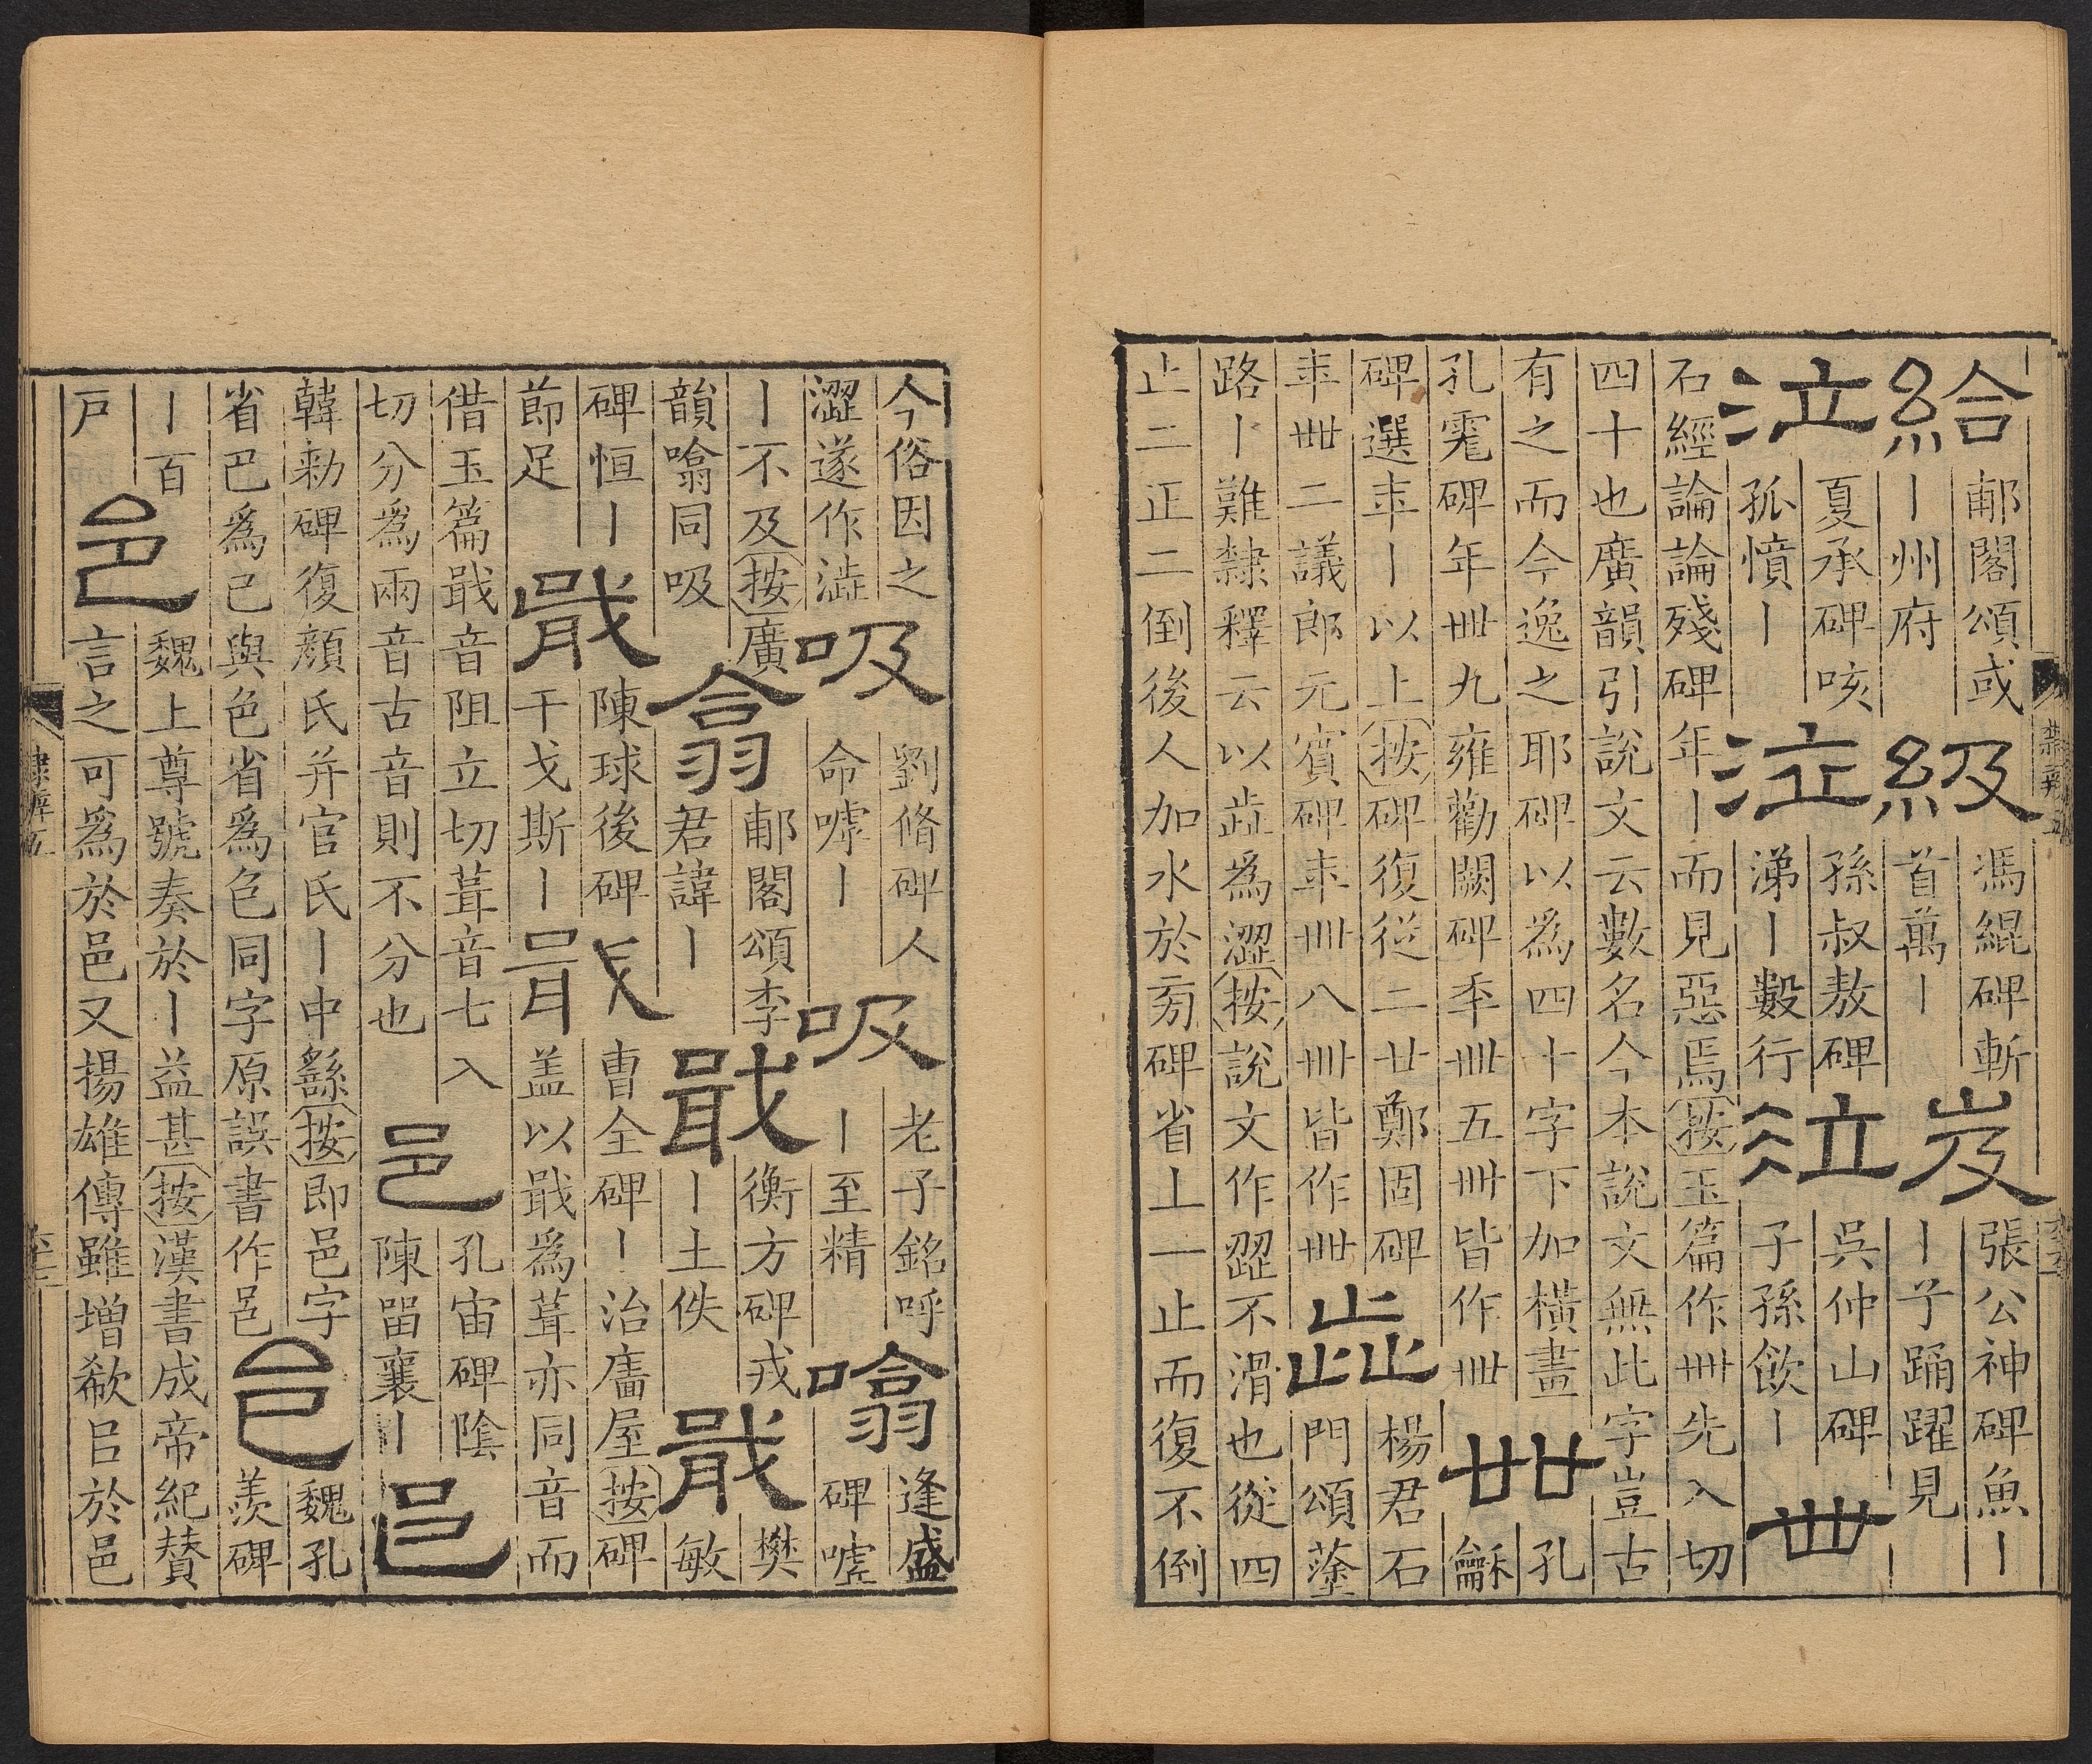 給
郙閣頌或
丨州府
級
馮緄碑斬
首萬丨
岌
張公神碑魚丨
丨孑踊躍見
泣
夏承碑咳
孤憤丨
泣
孫叔敖碑
涕丨數行
泣
吳仲山碑
子孫飲丨
卌
石經論論殘碑年丨而見惡焉按玉篇作卌先入切
四十也廣韻引說文云數名今本說文無此字豈古
有之而今逸之耶碑以為四十字下加橫畫
孔宙碑年卌九雍勸闕碑秊卌五卌皆作卌
卌
孔
龢
碑選秊丨以上按碑復從二廿鄭固碑
秊卌二議郎元賓碑秊卌八卌皆作卌
歮
楊君石
門頌蓬
路丨難隸釋云以歮為澀按說文作歰不滑也從四
止二正二倒後人加水於旁碑省上一止而復不倒
今俗因之
澀遂作澁
吸
劉脩碑人
命嘑丨
吸
老子銘呼
丨至精
噏
逢盛
碑嘘
丨不及按廣
韻噏同吸
翕
郙閣頌李
君諱丨
戢
衡方碑戎
丨士佚
戢
樊
敏
碑恒丨
節足
戢
陳球後碑
干戈斯丨
戢
曹全碑丨治廧屋按碑
盖以戢為葺亦同音而
借玉篇戢音阻立切葺音七入
切分為兩音古音則不分也
邑
孔宙碑陰
陳留襄丨
邑
韓勑碑復顏氏并官氏丨中繇按即邑字
省巴為已與色省為色同字原誤書作邑
邑
魏孔
羨碑
丨百
戸
邑
魏上尊號奏於丨益甚按漢書成帝紀贊
言之可為於邑又揚雄傳雖增欷㠯於邑